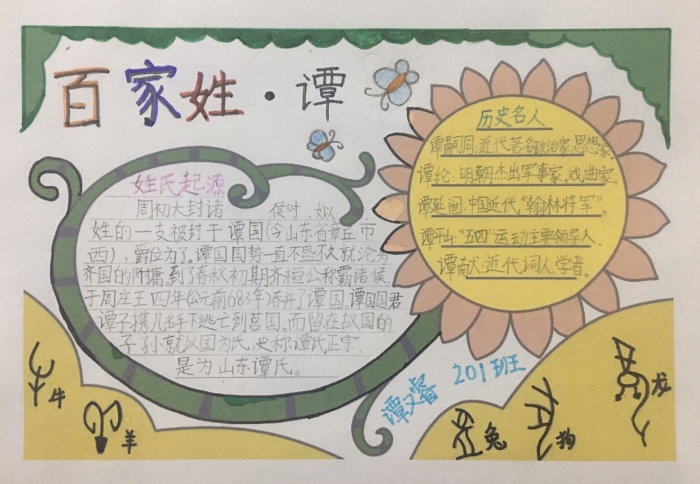 百家姓·谭
姓氏起源
周初大封诸侯时,姒
姓的一支被封于谭国(今山东省章丘市
西),爵位为子。谭国国势一直不盛,不久就沦为
齐国的附庸,到了春秋初期齐桓公称霸诸侯,
于周庄王四年(公元前683年)吞并了谭国,谭国国君
谭子携几名手下逃亡到莒国,而留在故国的
子孙就以国为氏,史称谭氏正宗,
是为山东谭氏。
历史名人
谭嗣同:近代著名政治家,思想家
谭纶:明朝杰出军事家、戏曲家。
谭延闿:中国近代"翰林将军"。
谭平山:"五四"运动主要领导人、
谭献:近代词人,学者。
谭又睿 201班
牛
羊
兔
狗
龙